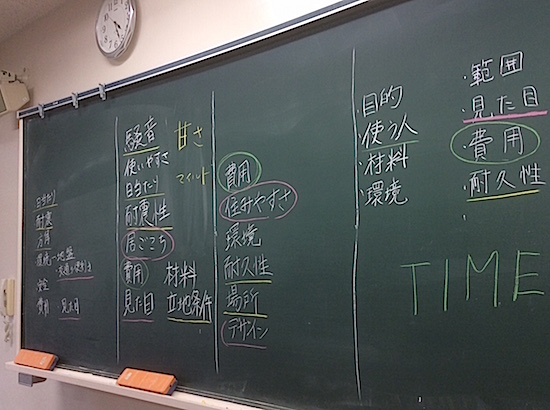 日当たり
耐震
方角
環境 - 地盤
安全
費用 見た目
騒音 甘さ
使いやすさ
日当たり
耐震性
居ごこち
費用 材料
見た目 立地条件
費用
住みやすさ
環境
耐久性
場所
デザイン
目的
・使う人
・材料
・環境
・範囲
・見た目
・費用
・耐久性
TIME